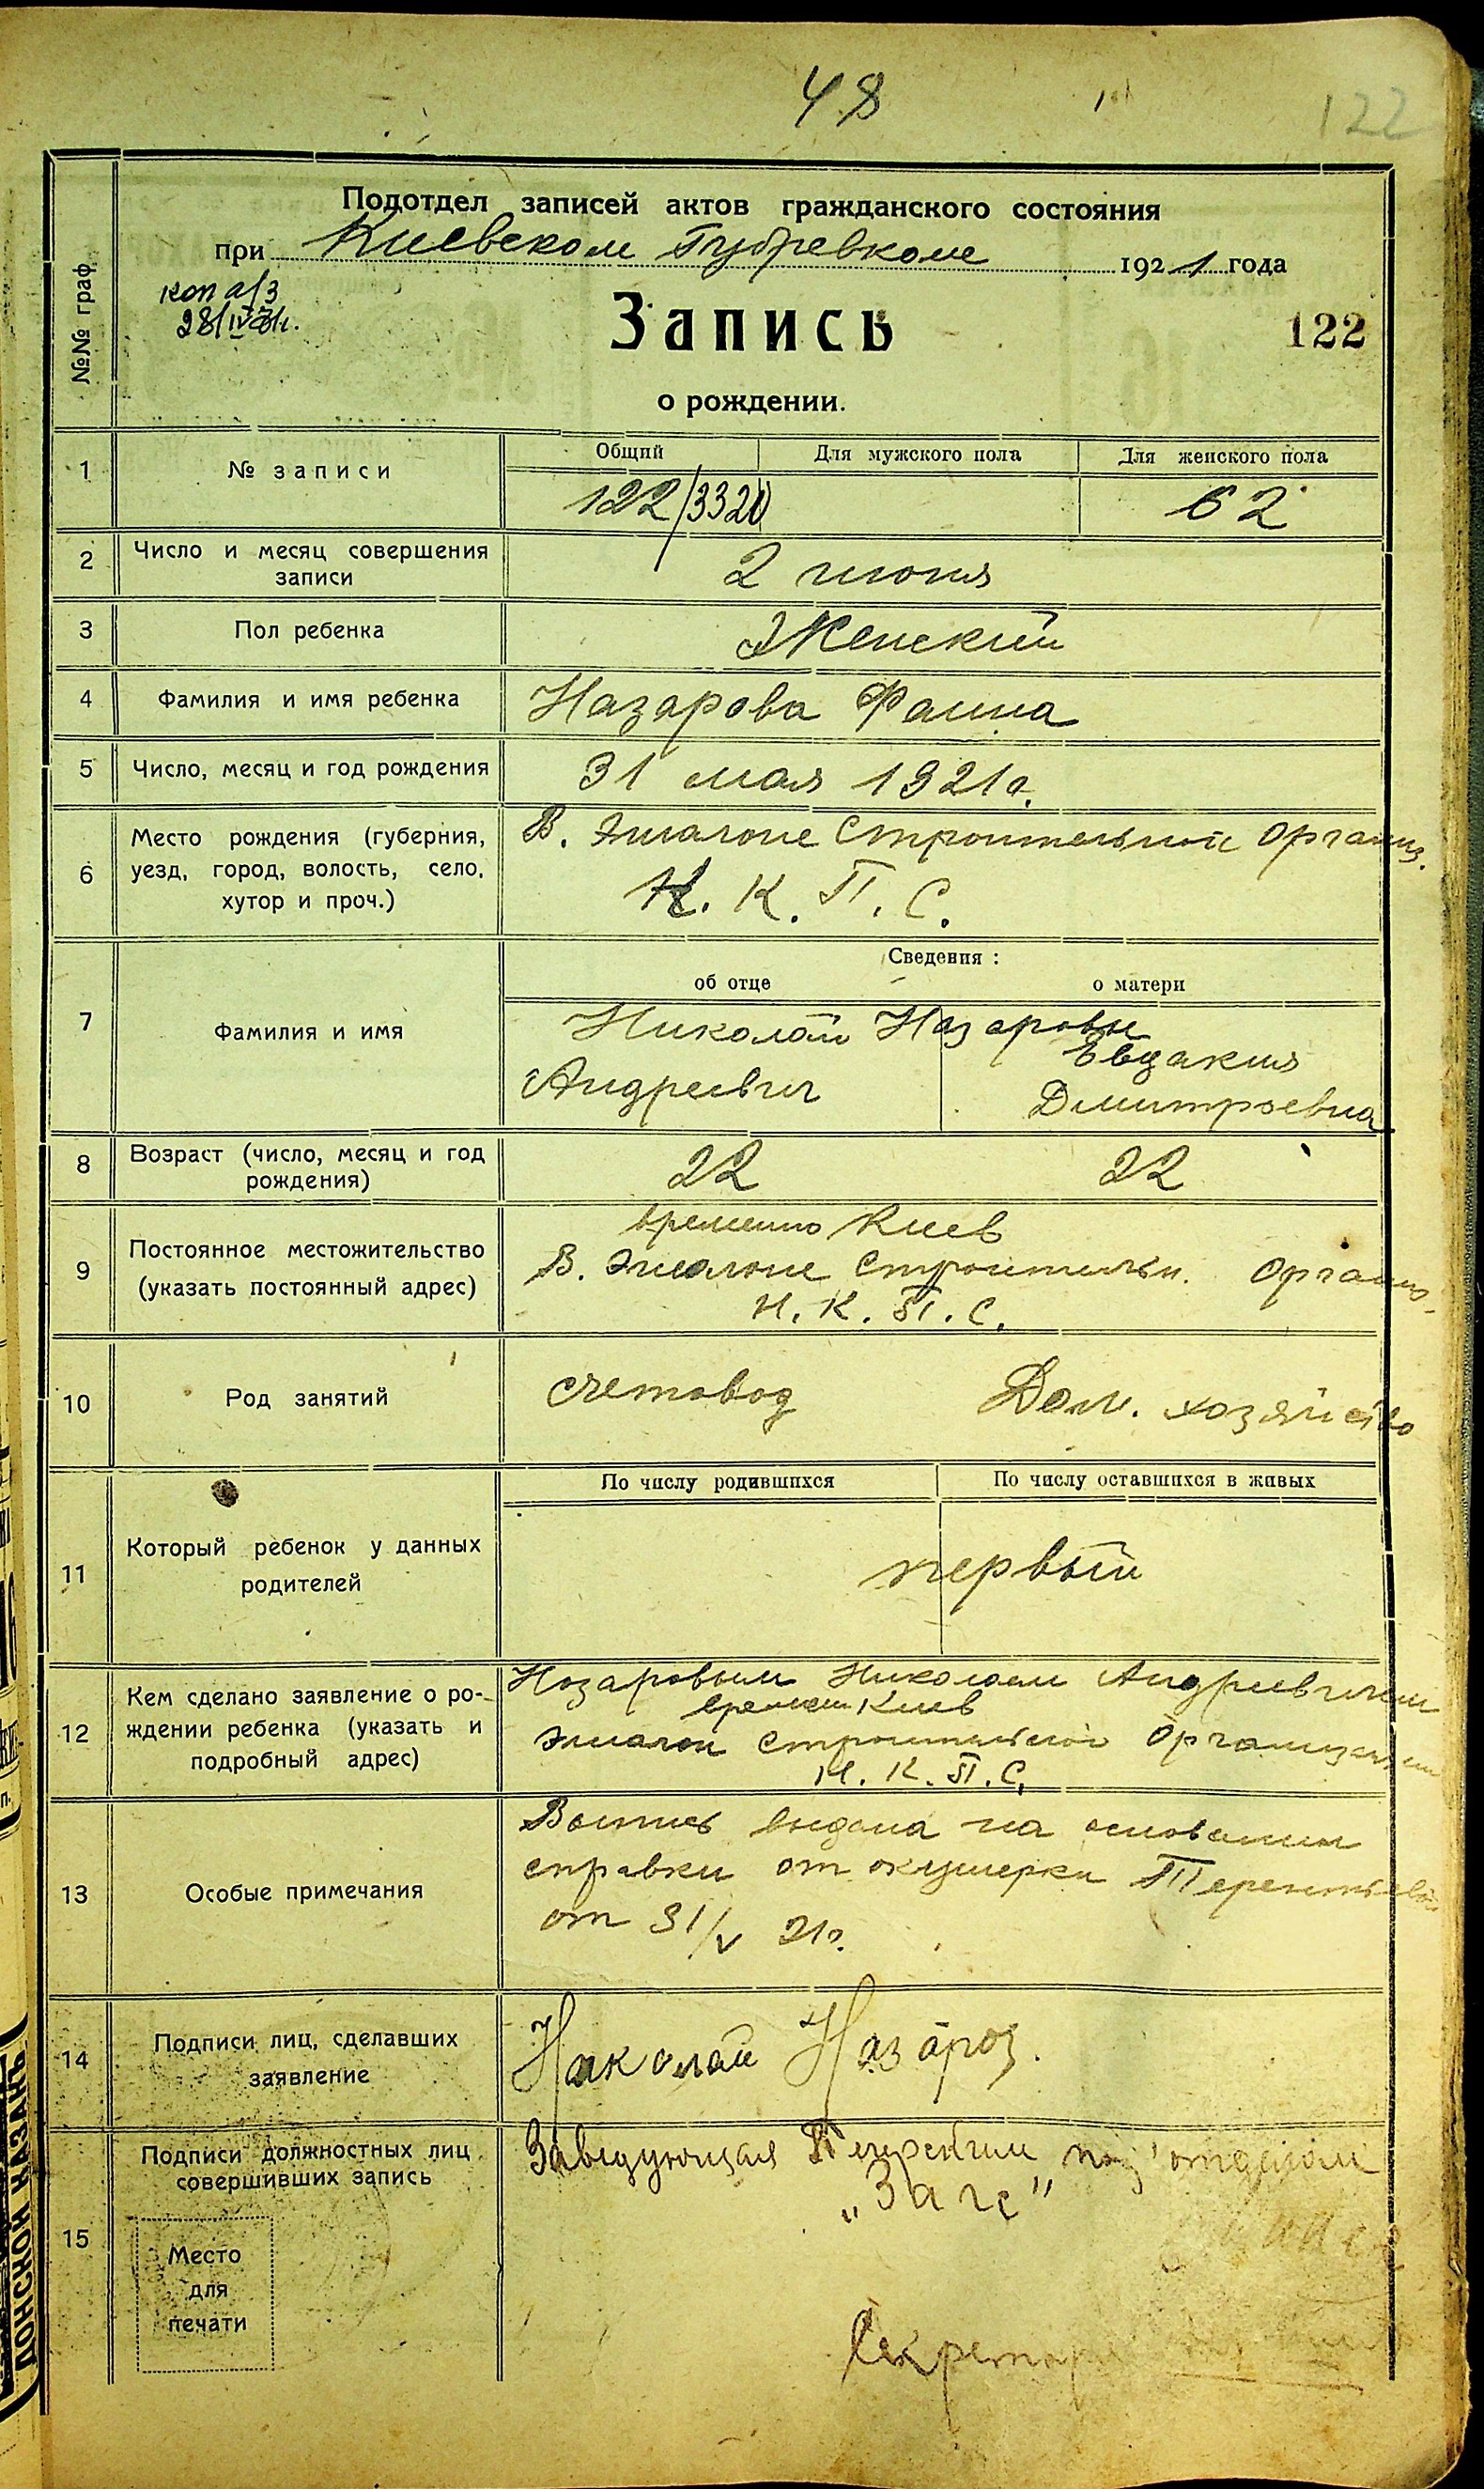 48
122
Подотдел записей актов гражданского состояния
при Киевском Губревкоме 1921 года
коп а/з
28/IV
Запись
122
о рождении.
№№ граф
1 № записи
Общий Для мужского пола Для женского пола
122/3320 62
2 Число и месяц совершения
записи
2 июня
3 Пол ребенка Женский
4 Фамилия и имя ребенка Назарова Фаина
5 Число, месяц и год рождения 31 мая 1921 г.
6 Место рождения (губерния,
уезд, город, волость, село,
хутор и проч.)
В. Эшалоне Строительной Организ.
Н. К. П. С.
Сведения :
об отце о матери
7 Фамилия и имя
Николай Назаровы
Евдакия
Андреевич Дмитроевна
8 Возраст (число, месяц и год
рождения)
22 22
9 Постоянное местожительство
(указать постоянный адрес)
временно Киев
В. Эшалоне Строительн. Организ.
Н. К. П. С.
10 Род занятий
счетовод Дом. хозяйство
11 Который ребенок у данных
родителей
По числу родившихся По числу оставшихся в живых
первый
12 Кем сделано заявление о ро-
ждении ребенка (указать и
подробный адрес)
Назаровым Николаем Андреевичем
времен Киев
Эшалон Строительной Организации
Н. К. П. С.
13 Особые примечания
Выпись выдана на основании
справки от акушерки Терентьевой
от 31/V 21 г.
14 Подписи лиц, сделавших
заявление
Николай Назаров.
15 Подписи должностных лиц
совершивших запись
Заведующая Печерским под'отделом
„Загс"
Место
для
печати
Секретарь
ДОНСКОЙ КАЗАКЪ